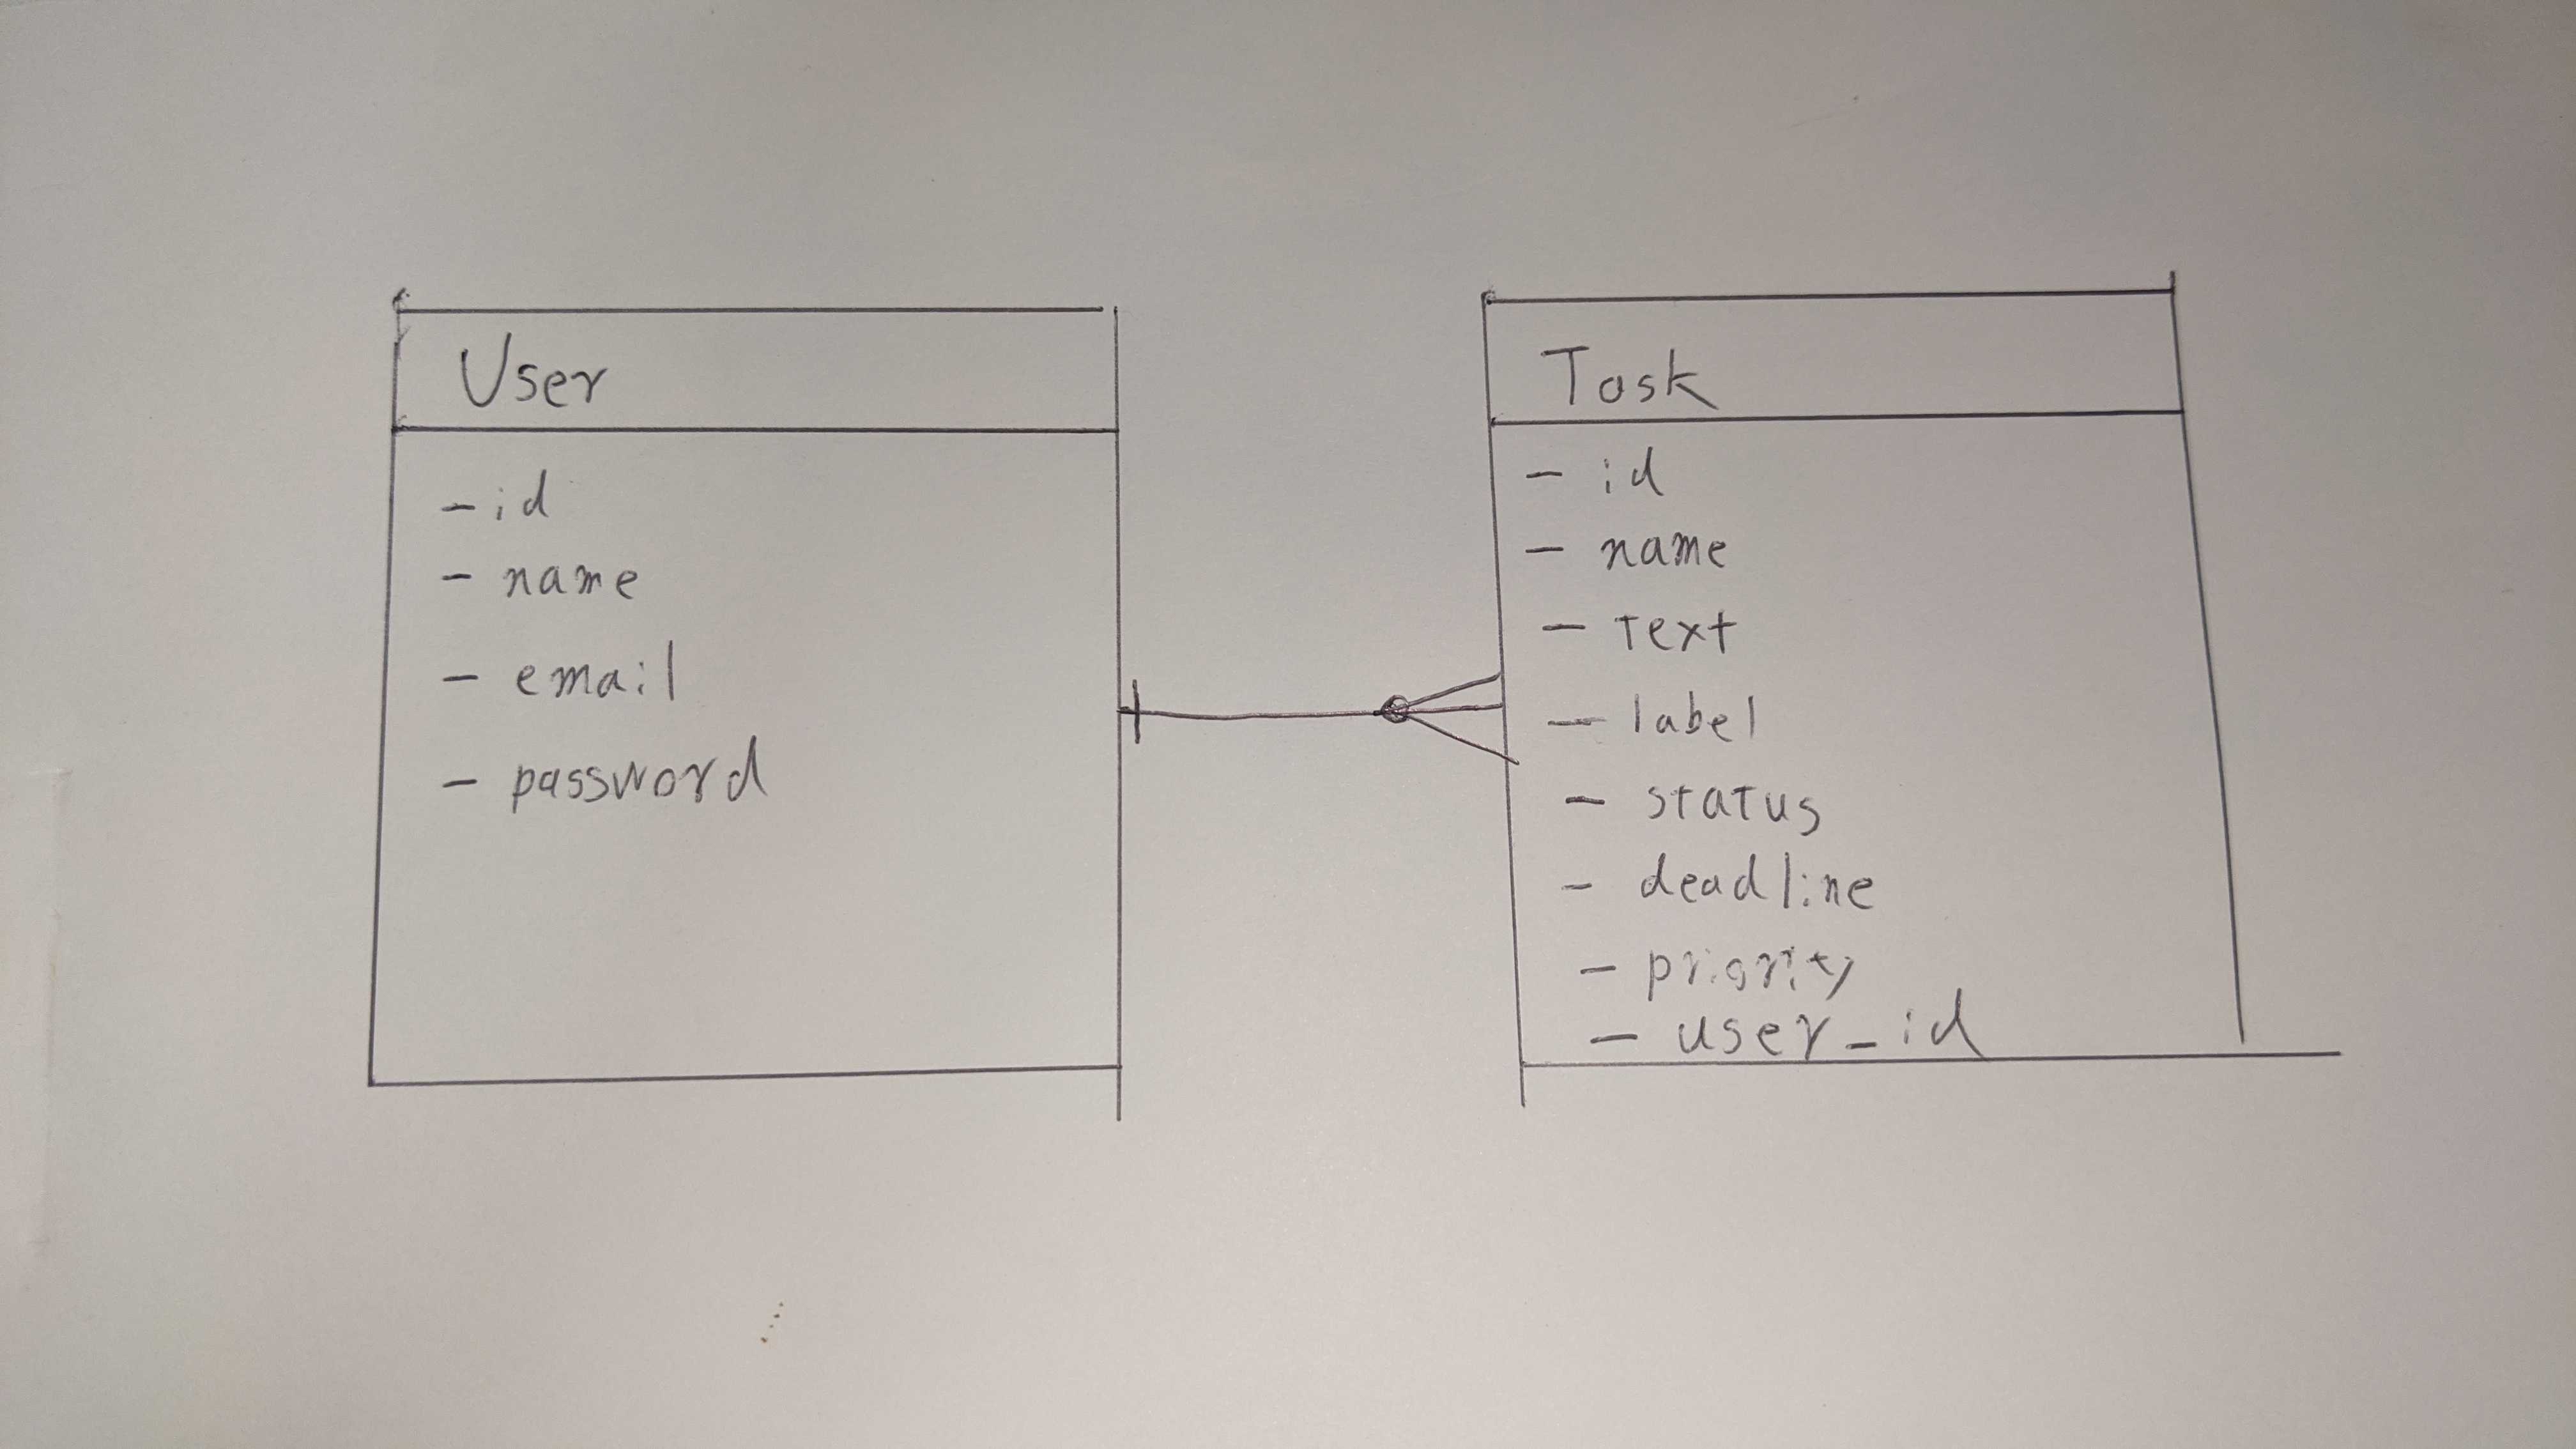 User
- id
- name
- email
- password
Task
- id
- name
- text
- label
- status
- deadline
- priority
- user_id